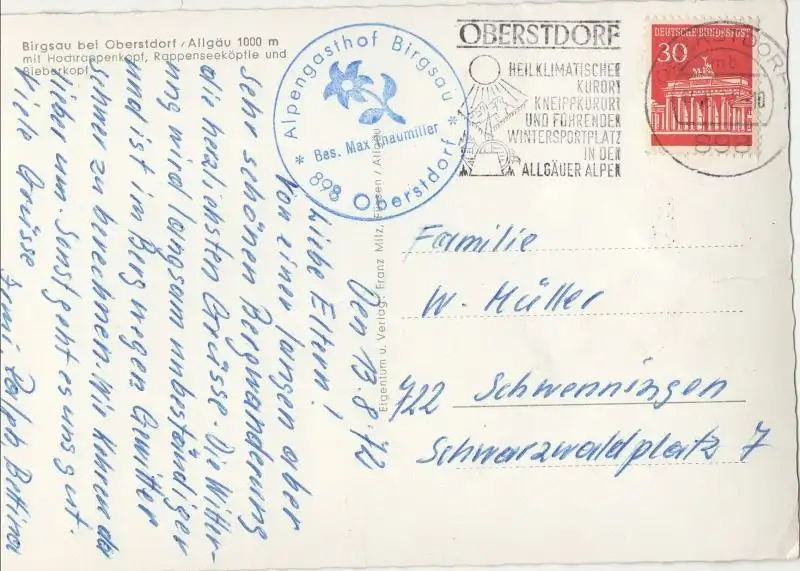 Birgsau bei Oberstdorf/Allgäu 1000 m
mit Hochrappenkopf, Rappenseeköpfle und
Bieberkopf
Alpengasthof Birgsau
* Bes. Max Thaumiller *
898 Oberstdorf
OBERSTDORF
HEILKLIMATISCHER
KURORT
KNEIPPKURORT
UND FÜHRENDER
WINTERSPORTPLATZ
IN DEN
ALLGÄUER ALPEN
DEUTSCHE BUNDESPOST
30
898
Eigentum u. Verlag: Franz Milz, Füssen/Allgäu
Den 13.8.72
Liebe Eltern!
Von einer langen aber
sehr schönen Bergwanderung
die herzlichsten Grüsse. Die Witter-
ung wird langsam unbeständiger
und ist im Berg wegen Gwitter
schwer zu berechnen. Wir kehren da
lieber um. Sonst geht es uns gut.
Viele Grüsse Ralph Bettina
Familie
W. Müller
722 Schwenningen
Schwarzwaldplatz 7